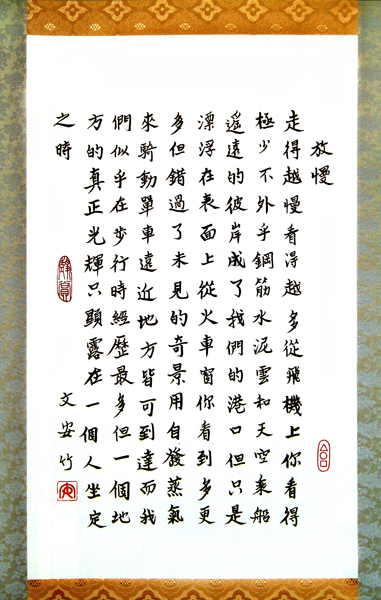 放慢
走得越慢看得越多從飛機上你看得
極少不外乎鋼筋水泥雲和天空乘船
遙遠的彼岸成了我們的港口但只是
漂浮在表面上從火車窗你看到多更
多但錯過了未見的奇景用自發蒸氣
來騎動單車遠近地方皆可到達而我
們似乎在步行時經歷最多但一個地
方的真正光輝只顯露在一個人坐定
之時
文安竹